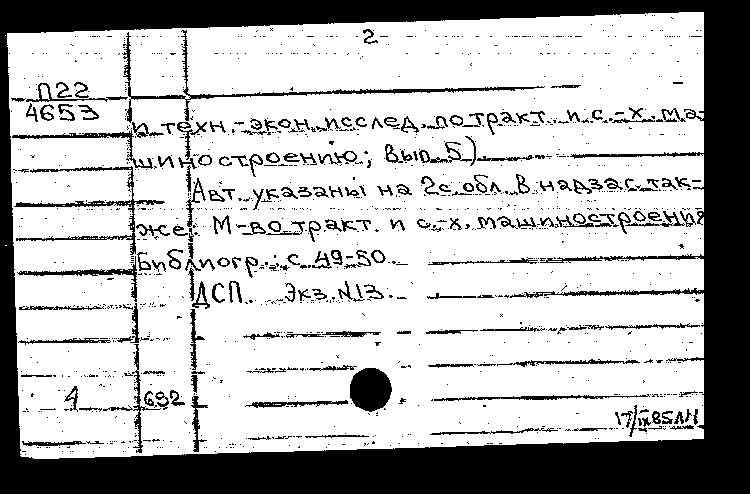 2
П22
4653
и техн.-экон. исслед. по тракт. и с.-х. ма-
шиностроению; Вып. 5).
Авт. указаны на 2с. обл. В надзаг. так-
же: М-во тракт. и с.-х. машиностроения
Библиогр.: с. 49-50.
ДСП. Экз. N13.
4 692
17/IX 85 ЛН